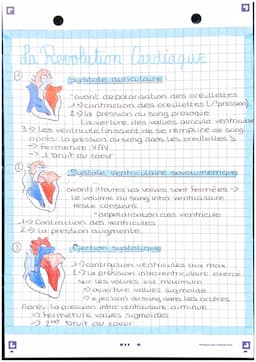 La Revolution Cardiaque
① Systole auriculaire :
"avant depolarisation des oreillettes
1→ contraction des oreillettes (↗pression)
2→ la pression du sang provoque
l'ouverture des valves auriculo ventriculaire
3→ Les ventricule finissent de se remplire de sang
après la pression du sang dans les oreillettes ↘
→ Fermeture VAV
→ 1 bruit du coeur
② Systole ventriculaire isovolumetrique
avant toutes les valves sont fermées →
le volume du sang intra ventriculaire
reste constant
"depolarisation des ventricule
1→ Contraction des ventricules
2→ La pression augmente
③ Ejection systolique
1→ contraction ventricules au max
2→ la pression intraventriculaire exercé
sur les valves est maximum
→ ouverture valves sigmoide
→ ejection du sang dans les artères
Après : la pression intra-ventriculaire diminue
→ Fermeture valves sigmoides
→ 2nd bruit du coeur